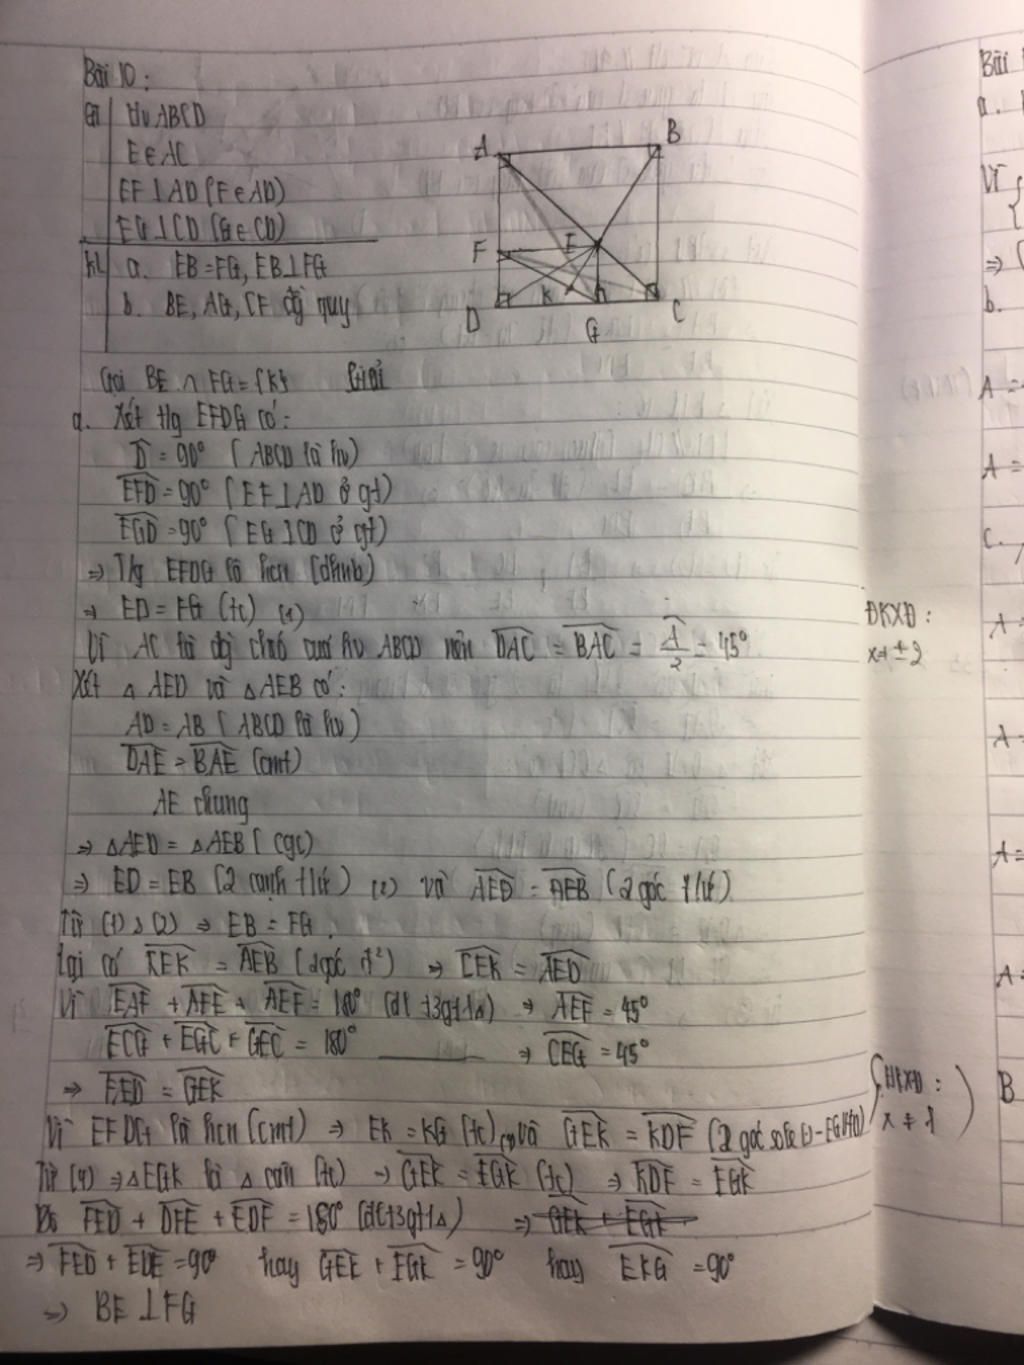 Bài 10:
Gt Hv ABCD
E∈AC
EF⊥AD (F∈AD)
EG⊥CD (G∈CD)
KL a. EB=FG, EB⊥FG
b. BE, AG, CF đg quy
A B
F E
D K C
G
Gọi BE ∩ FG={K} Giải
a. Xét tg EFDG có:
D̂ = 90° (ABCD là hv)
EFD = 90° (EF⊥AD ở gt)
EGD = 90° (EG⊥CD ở gt)
⇒ Tg EFDG là hcn (dhnb)
⇒ ED = FG (tc) (1)
Vì AC là đg chéo của hv ABCD nên DAC = BAC = Â/2 = 45°
Xét △AED và △AEB có:
AD = AB (ABCD là hv)
DAE = BAE (cmt)
AE chung
⇒ △AED = △AEB (cgc)
⇒ ED = EB (2 cạnh t/ứ) (2) và AED = AEB (2 góc t/ứ)
Từ (1), (2) ⇒ EB = FG.
Lại có CEK = AEB (2góc đ²) ⇒ CEK = AED
Vì EAF + AFE + AEF = 180° (đl t3gt1△) ⇒ AEF = 45°
ECG + EGC + GEC = 180° ⇒ CEG = 45°
⇒ FED = GEK
Vì EFDG là hcn (cmt) ⇒ EK = KG (tc) và GEK = KDF
Từ (4) ⇒ △EGK là △ cân (tc) ⇒ GEK = EGK (tc) ⇒ KDF = EGK
FED + DFE + EDF = 180° (đlt3gt1△) ⇒ GEK + EGK
⇒ FED + EDF = 90° hay GEK + EGK = 90° hay EKG = 90°
⇒ BE⊥FG
ĐKXĐ:
x≠±2
ĐKXĐ:
x≠1
Bài
a.
Vì
⇒
b.
A =
A =
c.
A =
A =
A =
A =
B